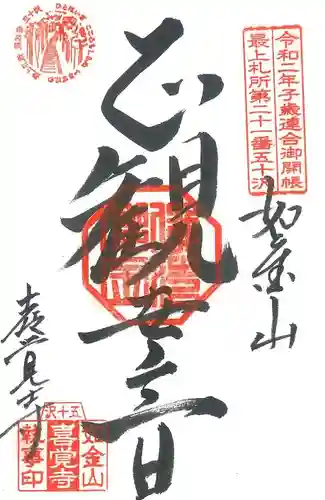 令和二年子歳連合御開帳
最上札所第二十一番五十沢
如金山
正観世音
喜覚寺
五十沢
如金山
喜覚寺
執事印